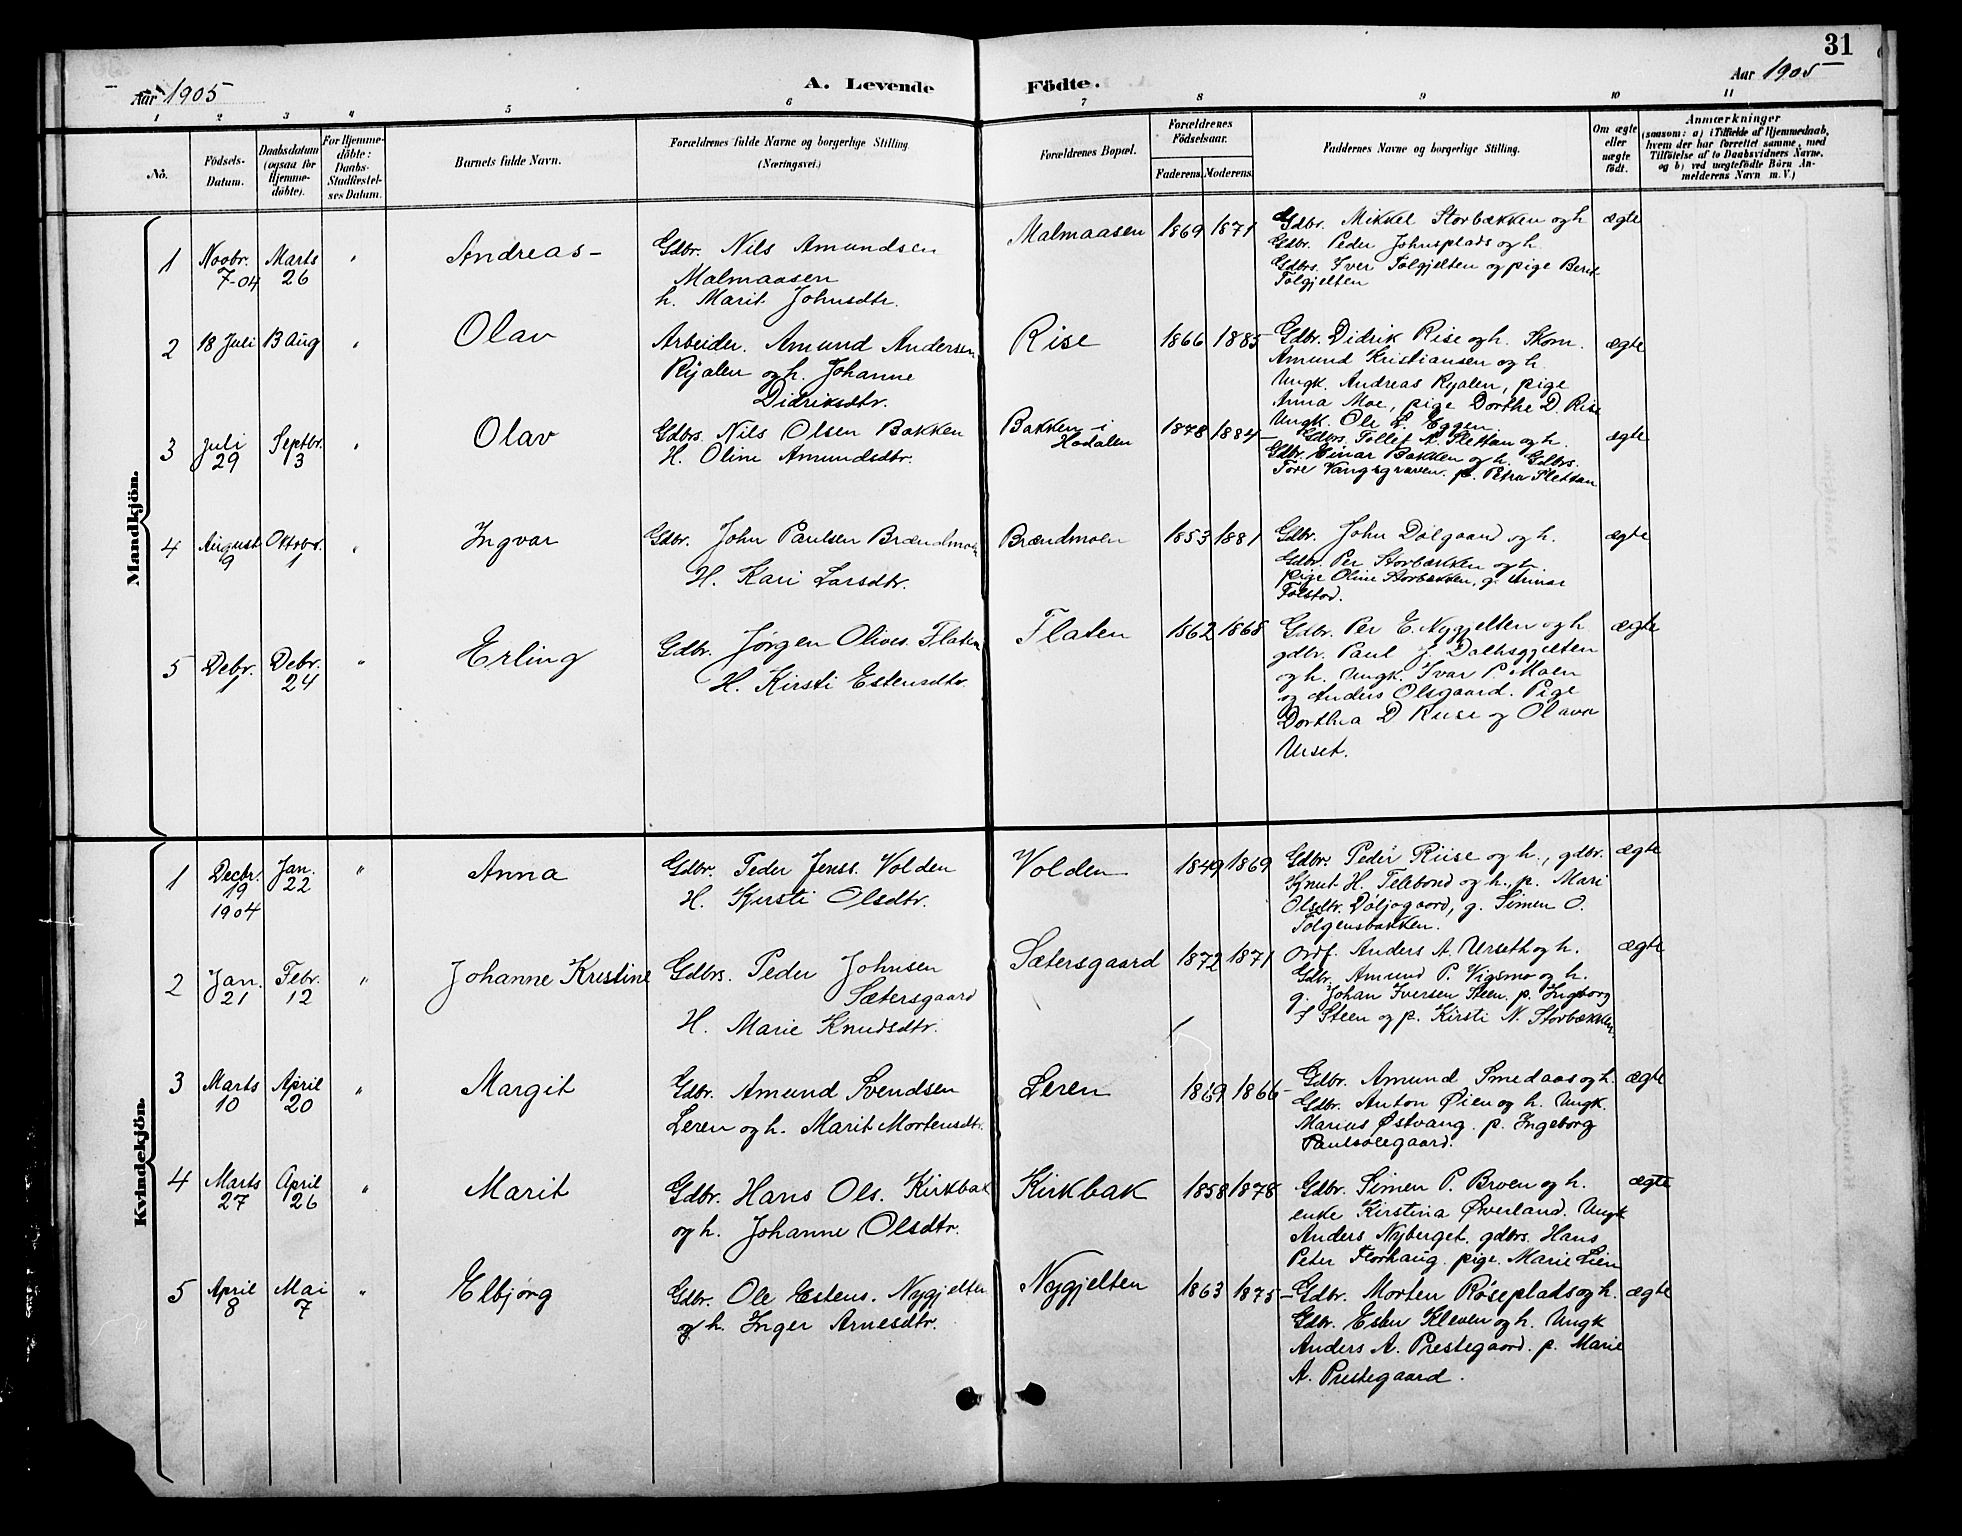 31
Aar 1905
A. Levende
Födte.
Aar 1905
1 2 3 4 5 6 7 8 9 10 11
No.
Födsels-
Datum.
Daabsdatum
(ogsaa for
Hjemme-
döbte).
For Hjemme-
döbte:
Daabs-
Stadfæstel-
ses Datum.
Barnets fulde Navn.
Forældrenes fulde Navne og borgerlige Stilling
(Næringsvei.)
Forældrenes Bopæl.
Forældrenes
Födselsaar.
Faderens.
Moderens.
Faddernes Navne og borgerlige Stilling.
Om ægte
eller
uægte
födt.
Anmærkninger
(saasom: a) i Tilfælde af Hjemmedaab,
hvem der har forrettet samme, med
Tilföielse af to Daabsvidners Navne,
og b) ved uægtefödte Börn An-
melderens Navn m. V.)
Mandkjön.
1
Novbr.
7-04
Marts
26
"
Andreas -
Gdbr. Nils Amundsen
Malmaasen
h. Marit Johnsdtr.
Malmaasen
1869
1871
Gdbr. Mikkel Storbækken og h
Gdbr. Peder Johnsplads og h.
Gdbrs. Iver Tolgjelten og pige Berit
Tolgjelten
ægte
2
18 Juli
13 Aug
"
Olav
Arbeider. Amund Andersen
Ryalen og h. Johanne
Didriksdtr.
Rise
1866
1885
Gdbr. Didrik Rise og h. Skom.
Amund Kristiansen og h.
Ungk. Andreas Ryalen, pige
Anna Moe, pige Dorthe D. Rise
Ungk. Ole E. Eggen
ægte
3
Juli
29
Septbr.
3
"
Olav
Gdbrs. Nils Olsen Bakken
H. Oline Amundsdtr.
Bakken i
Hodalen
1878
1884
Gdbrs. Tollef N. Slettan og h.
Gdbr. Einar Bakken og h. Gdbrs.
Tore Vangsgraven. p. Petra Slettan
ægte
4
August
9
Oktobr.
1
"
Ingvar
Gdbr. John Paulsen Brændmoen
H. Kari Larsdtr.
Brændmoen
1853
1881
Gdbr. John Dølgaard og h.
Gdbr. Per Storbækken og h.
pige Oline Storbækken, g. Annar
Tolstad.
ægte
5
Debr.
1
Debr.
24
"
Erling
Gdbr. Jørgen Olives. Flaten
H. Kirsti Estensdtr.
Flaten
1862
1868
Gdbr. Per E. Nygjelten og h
gdbr. Paul J. Dalhsgjelten
og h. Ungk. Ivar P. Moen
og Anders Olsgaard. Pige
Dorthea D Riise og Olava
Urset.
ægte
Kvindekjön.
1
Decbr.
19
1904
Jan.
22
"
Anna
Gdbr. Peder Jenss. Volden
H. Kjersti Olsdtr.
Volden
1849
1869
Gdbr. Peder Riise og h., gdbr.
Knut H. Telebond og h., p. Mari
Olsdtr. Døljogaard, g. Simen O.
Tolgensbakken.
ægte
2
Jan.
21
Febr.
12
"
Johanne Kristine
Gdbrs. Peder Johnsen
Sætersgaard
H. Marie Knudsdtr.
Sætersgaard
1872
1871
Ordf. Anders A. Urseth og h.
Gdbr. Amund P. Vigsmo og h.
g. Johan Iversen Steen. p. Ingeborg
J Steen og p. Kirsti N. Storbækken.
ægte
3
Marts
10
April
20
"
Margit
Gdbr. Amund Svendsen
Leren og h. Marit Mortensdtr.
Leren
1869
1866
Gdbr. Amund Smedaas og h.
Gdbr. Anton Øien og h. Ungk.
Marius Østvang. p. Ingeborg
Paulsølegaard.
ægte
4
Marts
27
April
26
"
Marit
Gdbr. Hans Ols. Kirkbak
og h. Johanne Olsdtr.
Kirkbak
1858
1878
Gdbr. Simen P. Broen og h.
enke Kirstina Øverland. Ungk
Anders Nyberget. gdbrs. Hans
Peter Florhaug. pige. Marie Lien
ægte
5
April
8
Mai
7
"
Elbjørg
Gdbr. Ole Estens. Nygjelten
og h. Inger Arnesdtr.
Nygjelten
1863
1875
Gdbr. Morten Røseplads og h.
Gdbr. Esten Kleven og h. Ungk
Anders A. Prestegaard. p. Marie
A. Prestegaard.
ægte